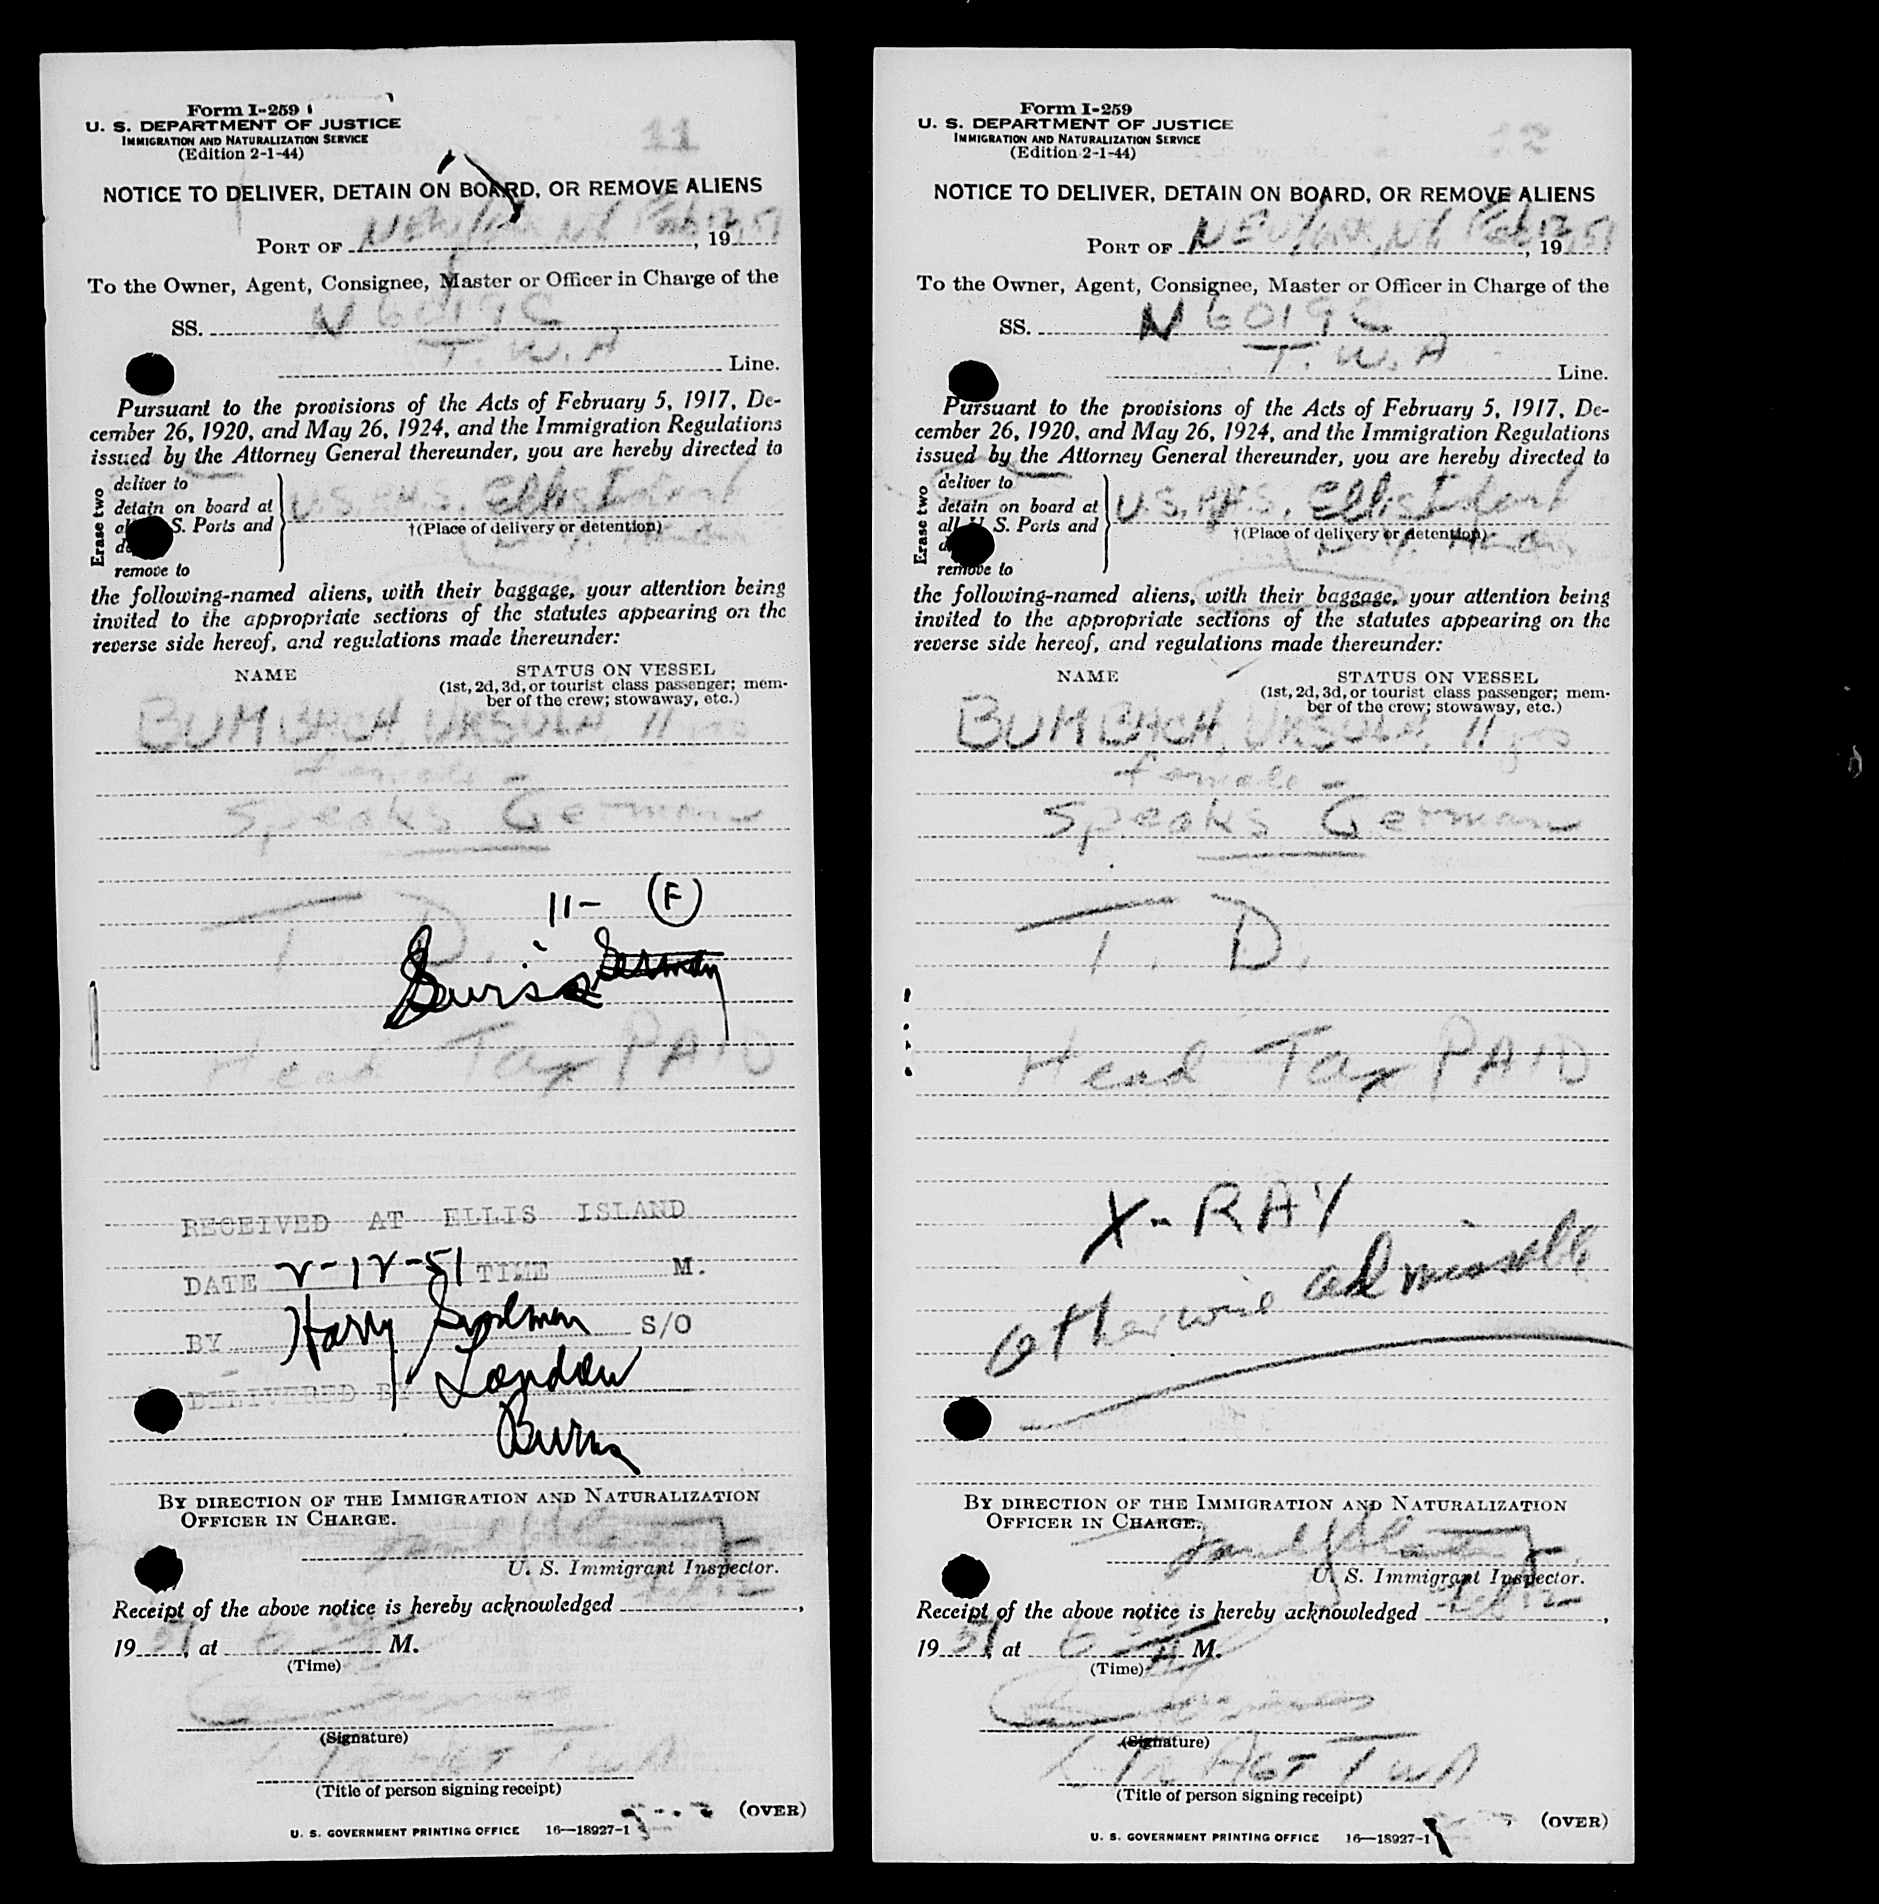 Form I-259
U. S. DEPARTMENT OF JUSTICE
IMMIGRATION AND NATURALIZATION SERVICE
(Edition 2-1-44)
11
NOTICE TO DELIVER, DETAIN ON BOARD, OR REMOVE ALIENS
PORT OF NEW YORK, NY Feb 12, 1951
To the Owner, Agent, Consignee, Master or Officer in Charge of the
SS. N 6019C
T.W.A Line.
Pursuant to the provisions of the Acts of February 5, 1917, De-
cember 26, 1920, and May 26, 1924, and the Immigration Regulations
issued by the Attorney General thereunder, you are hereby directed to
Erase two
deliver to
detain on board at
S. Ports and
remove to
U.S.P.H.S. Ellis Island
†(Place of delivery or detention)
N.Y.
the following-named aliens, with their baggage, your attention being
invited to the appropriate sections of the statutes appearing on the
reverse side hereof, and regulations made thereunder:
NAME
STATUS ON VESSEL
(1st, 2d, 3d, or tourist class passenger; mem-
ber of the crew; stowaway, etc.)
BUMBACH, URSULA, 11 yrs
female -
Speaks German
11- (F)
T. D.
Germany
Head Tax PAID
RECEIVED AT ELLIS ISLAND
DATE 2-12-51 TIME M.
BY Harry S/O
DELIVERED BY London
Burns
BY DIRECTION OF THE IMMIGRATION AND NATURALIZATION
OFFICER IN CHARGE.
U. S. Immigrant Inspector.
Receipt of the above notice is hereby acknowledged Feb 12,
1951, at 6 M.
(Time)
(Signature)
AGT TWA
(Title of person signing receipt)
(OVER)
U. S. GOVERNMENT PRINTING OFFICE 16—18927-1
Form I-259
U. S. DEPARTMENT OF JUSTICE
IMMIGRATION AND NATURALIZATION SERVICE
(Edition 2-1-44)
12
NOTICE TO DELIVER, DETAIN ON BOARD, OR REMOVE ALIENS
PORT OF NEW YORK, NY Feb 12, 1951
To the Owner, Agent, Consignee, Master or Officer in Charge of the
SS. N 6019C
T.W.A Line.
Pursuant to the provisions of the Acts of February 5, 1917, De-
cember 26, 1920, and May 26, 1924, and the Immigration Regulations
issued by the Attorney General thereunder, you are hereby directed to
Erase two
deliver to
detain on board at
all U. S. Ports and
remove to
U.S.P.H.S. Ellis Island
†(Place of delivery or detention)
N.Y.
the following-named aliens, with their baggage, your attention being
invited to the appropriate sections of the statutes appearing on the
reverse side hereof, and regulations made thereunder:
NAME
STATUS ON VESSEL
(1st, 2d, 3d, or tourist class passenger; mem-
ber of the crew; stowaway, etc.)
BUMBACH, URSULA, 11 yrs
female -
Speaks German
T. D.
Head Tax PAID
X-RAY
otherwise admissible
BY DIRECTION OF THE IMMIGRATION AND NATURALIZATION
OFFICER IN CHARGE.
U. S. Immigrant Inspector.
Receipt of the above notice is hereby acknowledged Feb 12,
1951, at 6 M.
(Time)
(Signature)
AGT TWA
(Title of person signing receipt)
(OVER)
U. S. GOVERNMENT PRINTING OFFICE 16—18927-1